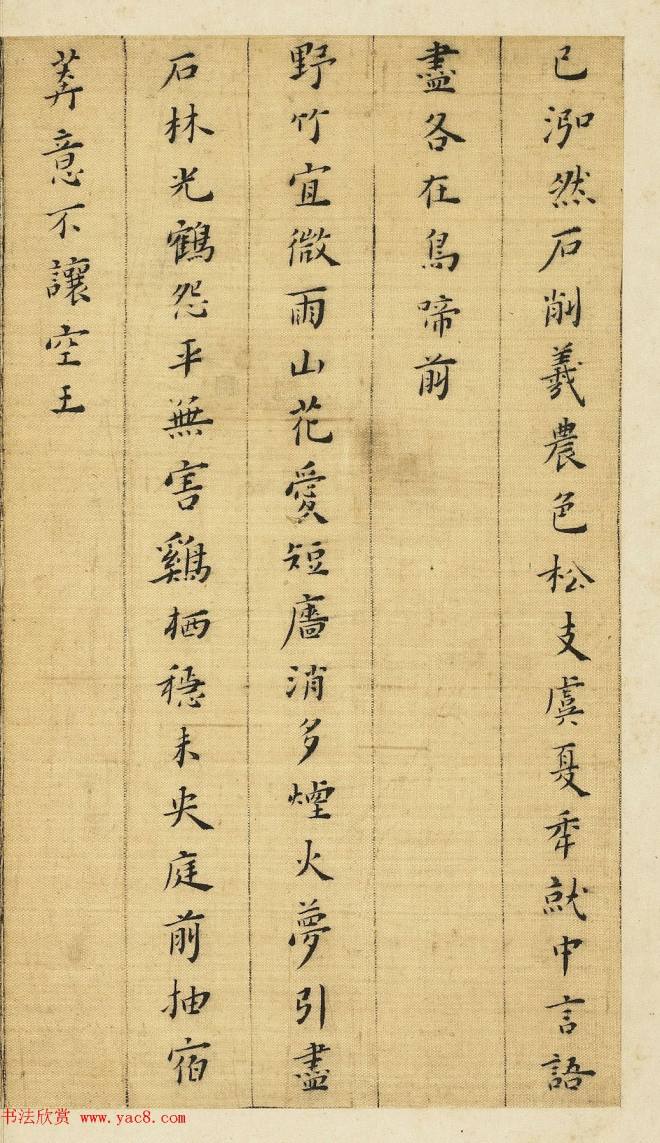 已泓然石削羲農色松支虞夏年就中言語
盡各在鳥啼前
野竹宜微雨山花愛短廧消多煙火夢引盡
石林光鶴怨平蕪害鷄栖穩未央庭前抽宿
莽意不讓空王
书法欣赏 www.yac8.com